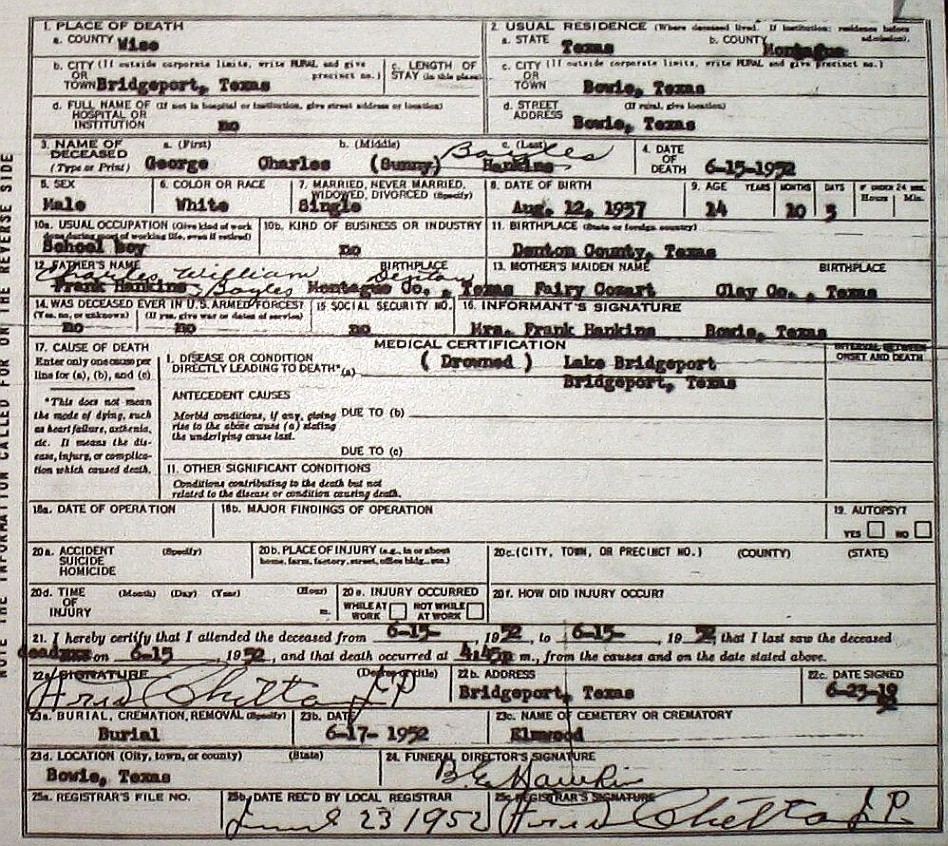 1. PLACE OF DEATH
a. COUNTY Wise
2. USUAL RESIDENCE (Where deceased lived. If institution: residence before admission).
a. STATE Texas b. COUNTY Montague
b. CITY (If outside corporate limits, write RURAL and give precinct no.)
OR
TOWN Bridgeport, Texas
c. LENGTH OF STAY (in this place)
c. CITY (If outside corporate limits, write RURAL and give precinct no.)
OR
TOWN Bowie, Texas
d. FULL NAME OF (If not in hospital or institution, give street address or location)
HOSPITAL OR
INSTITUTION no
d. STREET (If rural, give location)
ADDRESS Bowie, Texas
3. NAME OF DECEASED (Type or Print)
a. (First) b. (Middle) c. (Last)
George Charles (Sunny) Hankins Bayles
4. DATE OF DEATH 6-15-1952
5. SEX
Male
6. COLOR OR RACE
White
7. MARRIED, NEVER MARRIED, WIDOWED, DIVORCED (Specify)
Single
8. DATE OF BIRTH
Aug. 12, 1937
9. AGE YEARS MONTHS DAYS IF UNDER 24 HRS. Hours Min.
14 10 3
10a. USUAL OCCUPATION (Give kind of work done during most of working life, even if retired)
School boy
10b. KIND OF BUSINESS OR INDUSTRY
no
11. BIRTHPLACE (State or foreign country)
Denton County, Texas
12. FATHER'S NAME BIRTHPLACE
Charles William Bayles Denton
Frank Hankins Montague Co., Texas
13. MOTHER'S MAIDEN NAME BIRTHPLACE
Fairy Cozart Clay Co., Texas
14. WAS DECEASED EVER IN U.S. ARMED FORCES?
(Yes, no, or unknown) (If yes, give war or dates of service)
no no
15 SOCIAL SECURITY NO.
no
16. INFORMANT'S SIGNATURE
Mrs. Frank Hankins Bowie, Texas
MEDICAL CERTIFICATION
17. CAUSE OF DEATH
Enter only one cause per line for (a), (b), and (c)
*This does not mean the mode of dying, such as heart failure, asthenia, etc. It means the disease, injury, or complication which caused death.
INTERVAL BETWEEN ONSET AND DEATH
I. DISEASE OR CONDITION
DIRECTLY LEADING TO DEATH* (a) ( Drowned ) Lake Bridgeport
Bridgeport, Texas
ANTECEDENT CAUSES
Morbid conditions, if any, giving rise to the above cause (a) stating the underlying cause last.
DUE TO (b)
DUE TO (c)
11. OTHER SIGNIFICANT CONDITIONS
Conditions contributing to the death but not
related to the disease or condition causing death.
18a. DATE OF OPERATION
18b. MAJOR FINDINGS OF OPERATION
19. AUTOPSY?
YES NO
20a. ACCIDENT (Specify)
SUICIDE
HOMICIDE
20b. PLACE OF INJURY (e.g., in or about home, farm, factory, street, office bldg., etc.)
20c. (CITY, TOWN, OR PRECINCT NO.) (COUNTY) (STATE)
20d. TIME OF INJURY (Month) (Day) (Year) (Hour) m.
20e. INJURY OCCURRED
WHILE AT WORK NOT WHILE AT WORK
20f. HOW DID INJURY OCCUR?
21. I hereby certify that I attended the deceased from 6-15- , 1952, to 6-15- , 1952, that I last saw the deceased
dead on 6-15 , 1952, and that death occurred at 4:45p m., from the causes and on the date stated above.
22a. SIGNATURE (Degree or title)
J.P.
22b. ADDRESS
Bridgeport, Texas
22c. DATE SIGNED
6-23-19
23a. BURIAL, CREMATION, REMOVAL (Specify)
Burial
23b. DATE
6-17- 1952
23c. NAME OF CEMETERY OR CREMATORY
Elmwood
23d. LOCATION (City, town, or county) (State)
Bowie, Texas
24. FUNERAL DIRECTOR'S SIGNATURE
25a. REGISTRAR'S FILE NO.
25b. DATE REC'D BY LOCAL REGISTRAR
June 23 1952
25c. REGISTRAR'S SIGNATURE
J.P.
NOTE THE INFORMATION CALLED FOR ON THE REVERSE SIDE